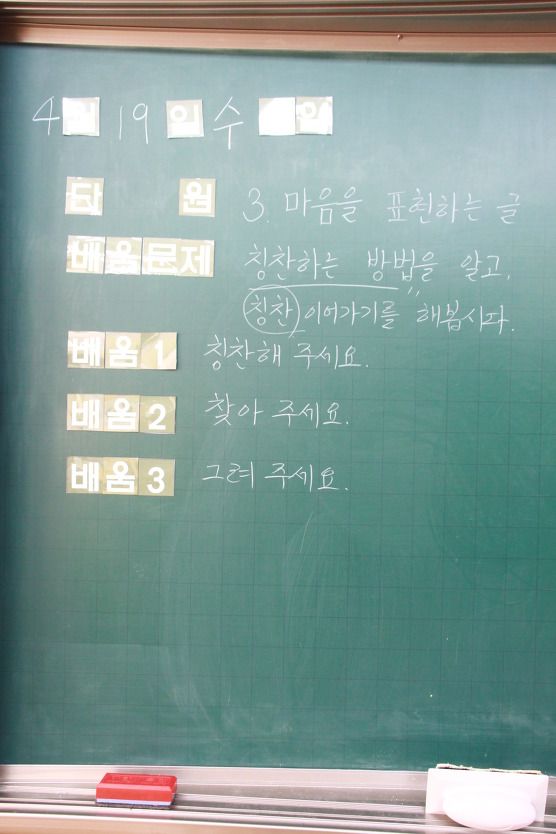 4월 19일 수 일
단 원 3. 마음을 표현하는 글
배움문제 칭찬하는 방법을 알고,
칭찬 이어가기를 해봅시다.
배움 1 칭찬해 주세요.
배움 2 찾아 주세요.
배움 3 그려 주세요.